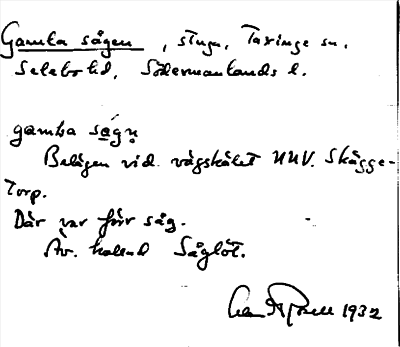 Gamla sågen, stuga, Taxinge sn,
Selebo hd, Södermanlands l.
gamla sågn̥
Belägen vid vägskälet NNV. Skägge-
torp.
Där var förr såg.
Äv. kallad Såglöt.
1932